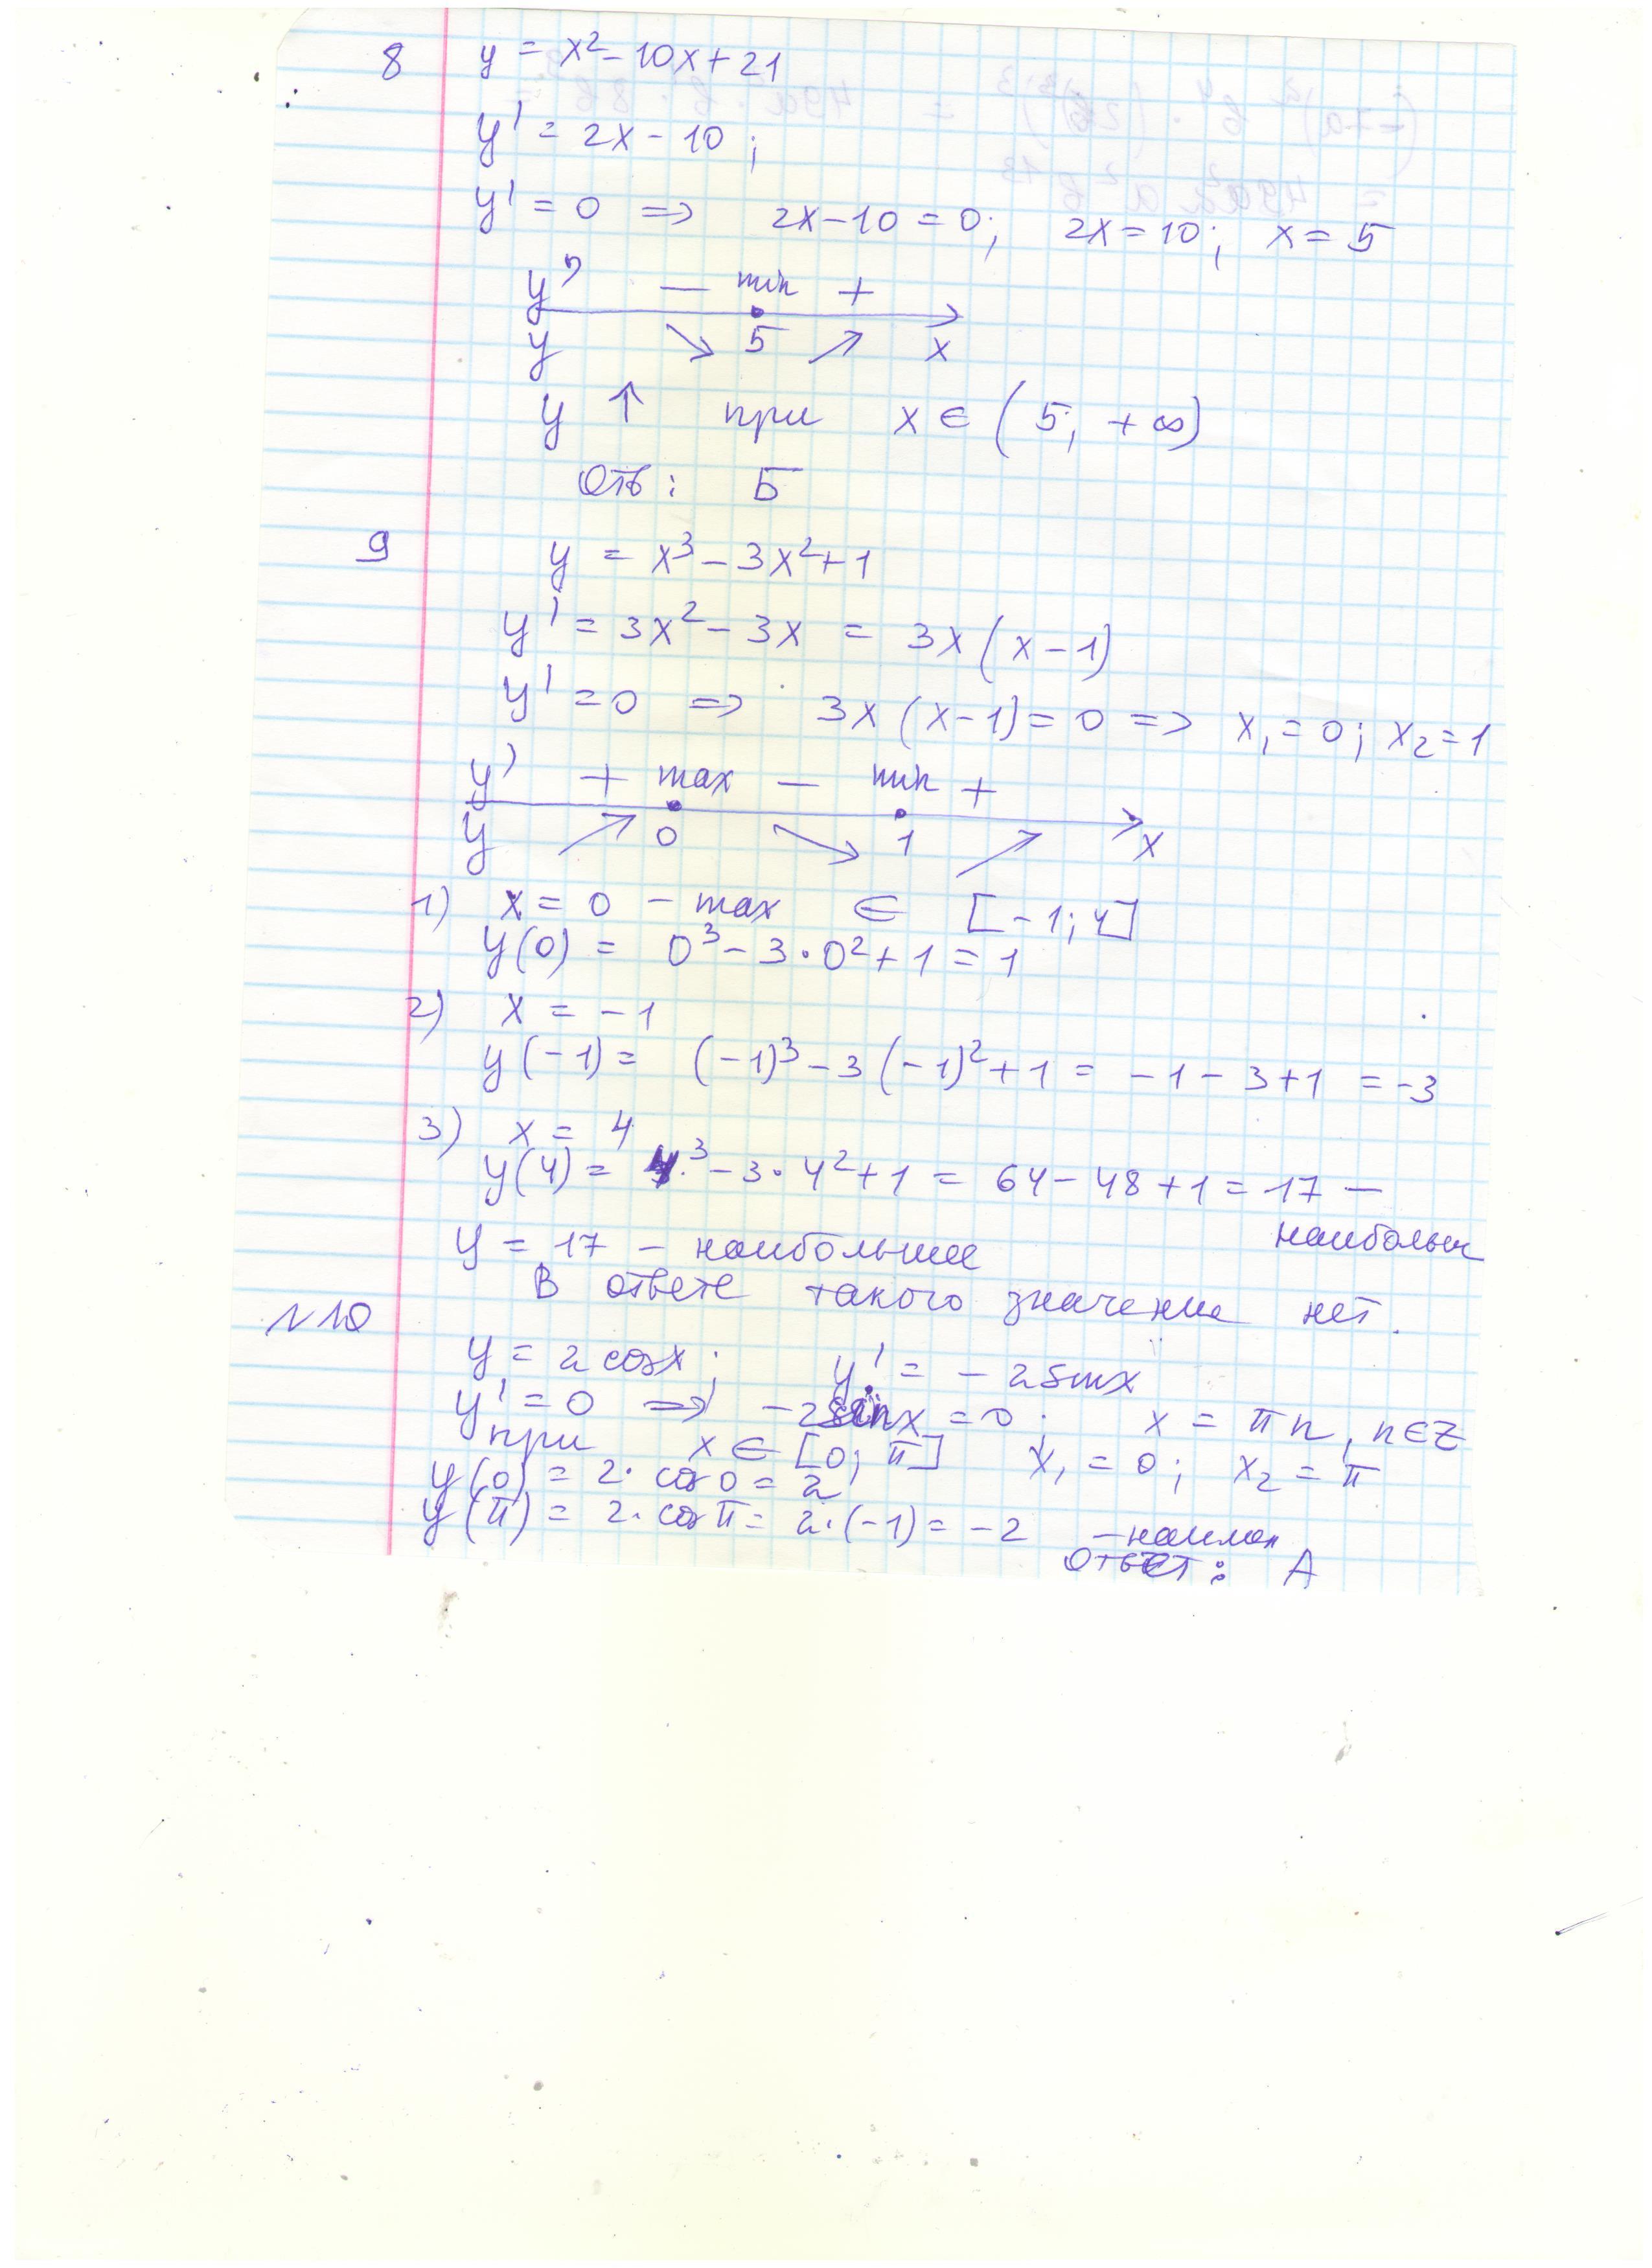 8 y = x² - 10x + 21
y' = 2x - 10 ;
y' = 0 => 2x - 10 = 0; 2x = 10; x = 5
y' — min +
5 x
y
y ↑ при x ∈ ( 5; + ∞)
Отв : Б
9 y = x³ - 3x² + 1
y' = 3x² - 3x = 3x (x - 1)
y' = 0 => 3x (x - 1) = 0 => x₁ = 0; x₂ = 1
y' + max — min +
y 0 1 x
1) x = 0 - max ∈ [-1; 4]
y(0) = 0³ - 3 · 0² + 1 = 1
2) x = -1
y(-1) = (-1)³ - 3 (-1)² + 1 = -1 - 3 + 1 = -3
3) x = 4
y(4) = 4³ - 3 · 4² + 1 = 64 - 48 + 1 = 17 —
наибольш
y = 17 - наибольшее
В ответе такого значение нет.
N10
y = 2 cos x ; y' = - 2 sin x
y' = 0 => - 2 sin x = 0 ; x = πn, n ∈ Z
при x ∈ [0; π] x₁ = 0; x₂ = π
y(0) = 2 · cos 0 = 2
y(π) = 2 · cos π = 2 · (-1) = -2 — наимен
ответ : А